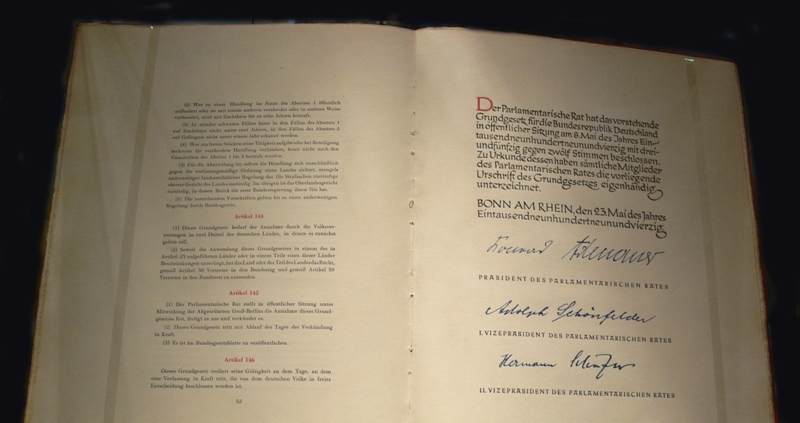 (2) Wer zu einer Handlung im Sinne des Absatzes 1 öffentlich
auffordert oder sie mit einem anderen verabredet oder in anderer Weise
vorbereitet, wird mit Zuchthaus bis zu zehn Jahren bestraft.
(3) In minder schweren Fällen kann in den Fällen des Absatzes 1
auf Zuchthaus nicht unter zwei Jahren, in den Fällen des Absatzes 2
auf Gefängnis nicht unter einem Jahr erkannt werden.
(4) Wer aus freien Stücken seine Tätigkeit aufgibt oder bei Beteiligung
mehrerer die verabredete Handlung verhindert, kann nicht nach den
Vorschriften der Absätze 1 bis 3 bestraft werden.
(5) Für die Aburteilung ist, sofern die Handlung sich ausschließlich
gegen die verfassungsmäßige Ordnung eines Landes richtet, mangels
anderweitiger landesrechtlicher Regelung das für Strafsachen zuständige
oberste Gericht des Landes zuständig. Im übrigen ist das Oberlandesgericht
zuständig, in dessen Bezirk die erste Bundesregierung ihren Sitz hat.
(6) Die vorstehenden Vorschriften gelten bis zu einer anderweitigen
Regelung durch Bundesgesetz.
Artikel 144
(1) Dieses Grundgesetz bedarf der Annahme durch die Volksver-
tretungen in zwei Dritteln der deutschen Länder, in denen es zunächst
gelten soll.
(2) Soweit die Anwendung dieses Grundgesetzes in einem der in
Artikel 23 aufgeführten Länder oder in einem Teile eines dieser Länder
Beschränkungen unterliegt, hat das Land oder der Teil des Landes das Recht,
gemäß Artikel 38 Vertreter in den Bundestag und gemäß Artikel 50
Vertreter in den Bundesrat zu entsenden.
Artikel 145
(1) Der Parlamentarische Rat stellt in öffentlicher Sitzung unter
Mitwirkung der Abgeordneten Groß-Berlins die Annahme dieses Grund-
gesetzes fest, fertigt es aus und verkündet es.
(2) Dieses Grundgesetz tritt mit Ablauf des Tages der Verkündung
in Kraft.
(3) Es ist im Bundesgesetzblatte zu veröffentlichen.
Artikel 146
Dieses Grundgesetz verliert seine Gültigkeit an dem Tage, an dem
eine Verfassung in Kraft tritt, die von dem deutschen Volke in freier
Entscheidung beschlossen worden ist.
Der Parlamentarische Rat hat das vorstehende
Grundgesetz für die Bundesrepublik Deutschland
in öffentlicher Sitzung am 8. Mai des Jahres Ein-
tausendneunhundertneunundvierzig mit drei-
undfünfzig gegen zwölf Stimmen beschlossen.
Zu Urkunde dessen haben sämtliche Mitglieder
des Parlamentarischen Rates die vorliegende
Urschrift des Grundgesetzes eigenhändig
unterzeichnet.
BONN AM RHEIN, den 23. Mai des Jahres
Eintausendneunhundertneunundvierzig.
Konrad Adenauer
PRÄSIDENT DES PARLAMENTARISCHEN RATES
Adolph Schönfelder
I. VIZEPRÄSIDENT DES PARLAMENTARISCHEN RATES
Hermann Schäfer
II. VIZEPRÄSIDENT DES PARLAMENTARISCHEN RATES